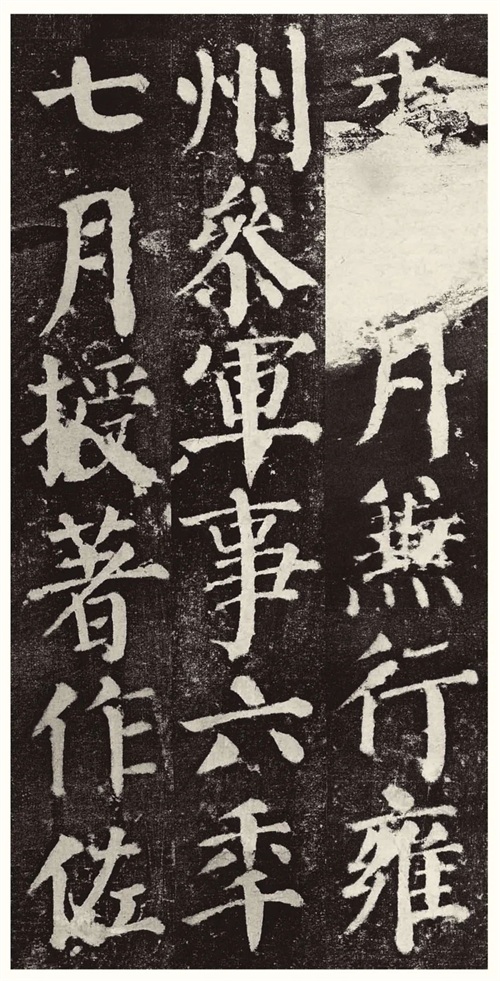 月兼行雍
州參軍事六秊
七月授著作佐